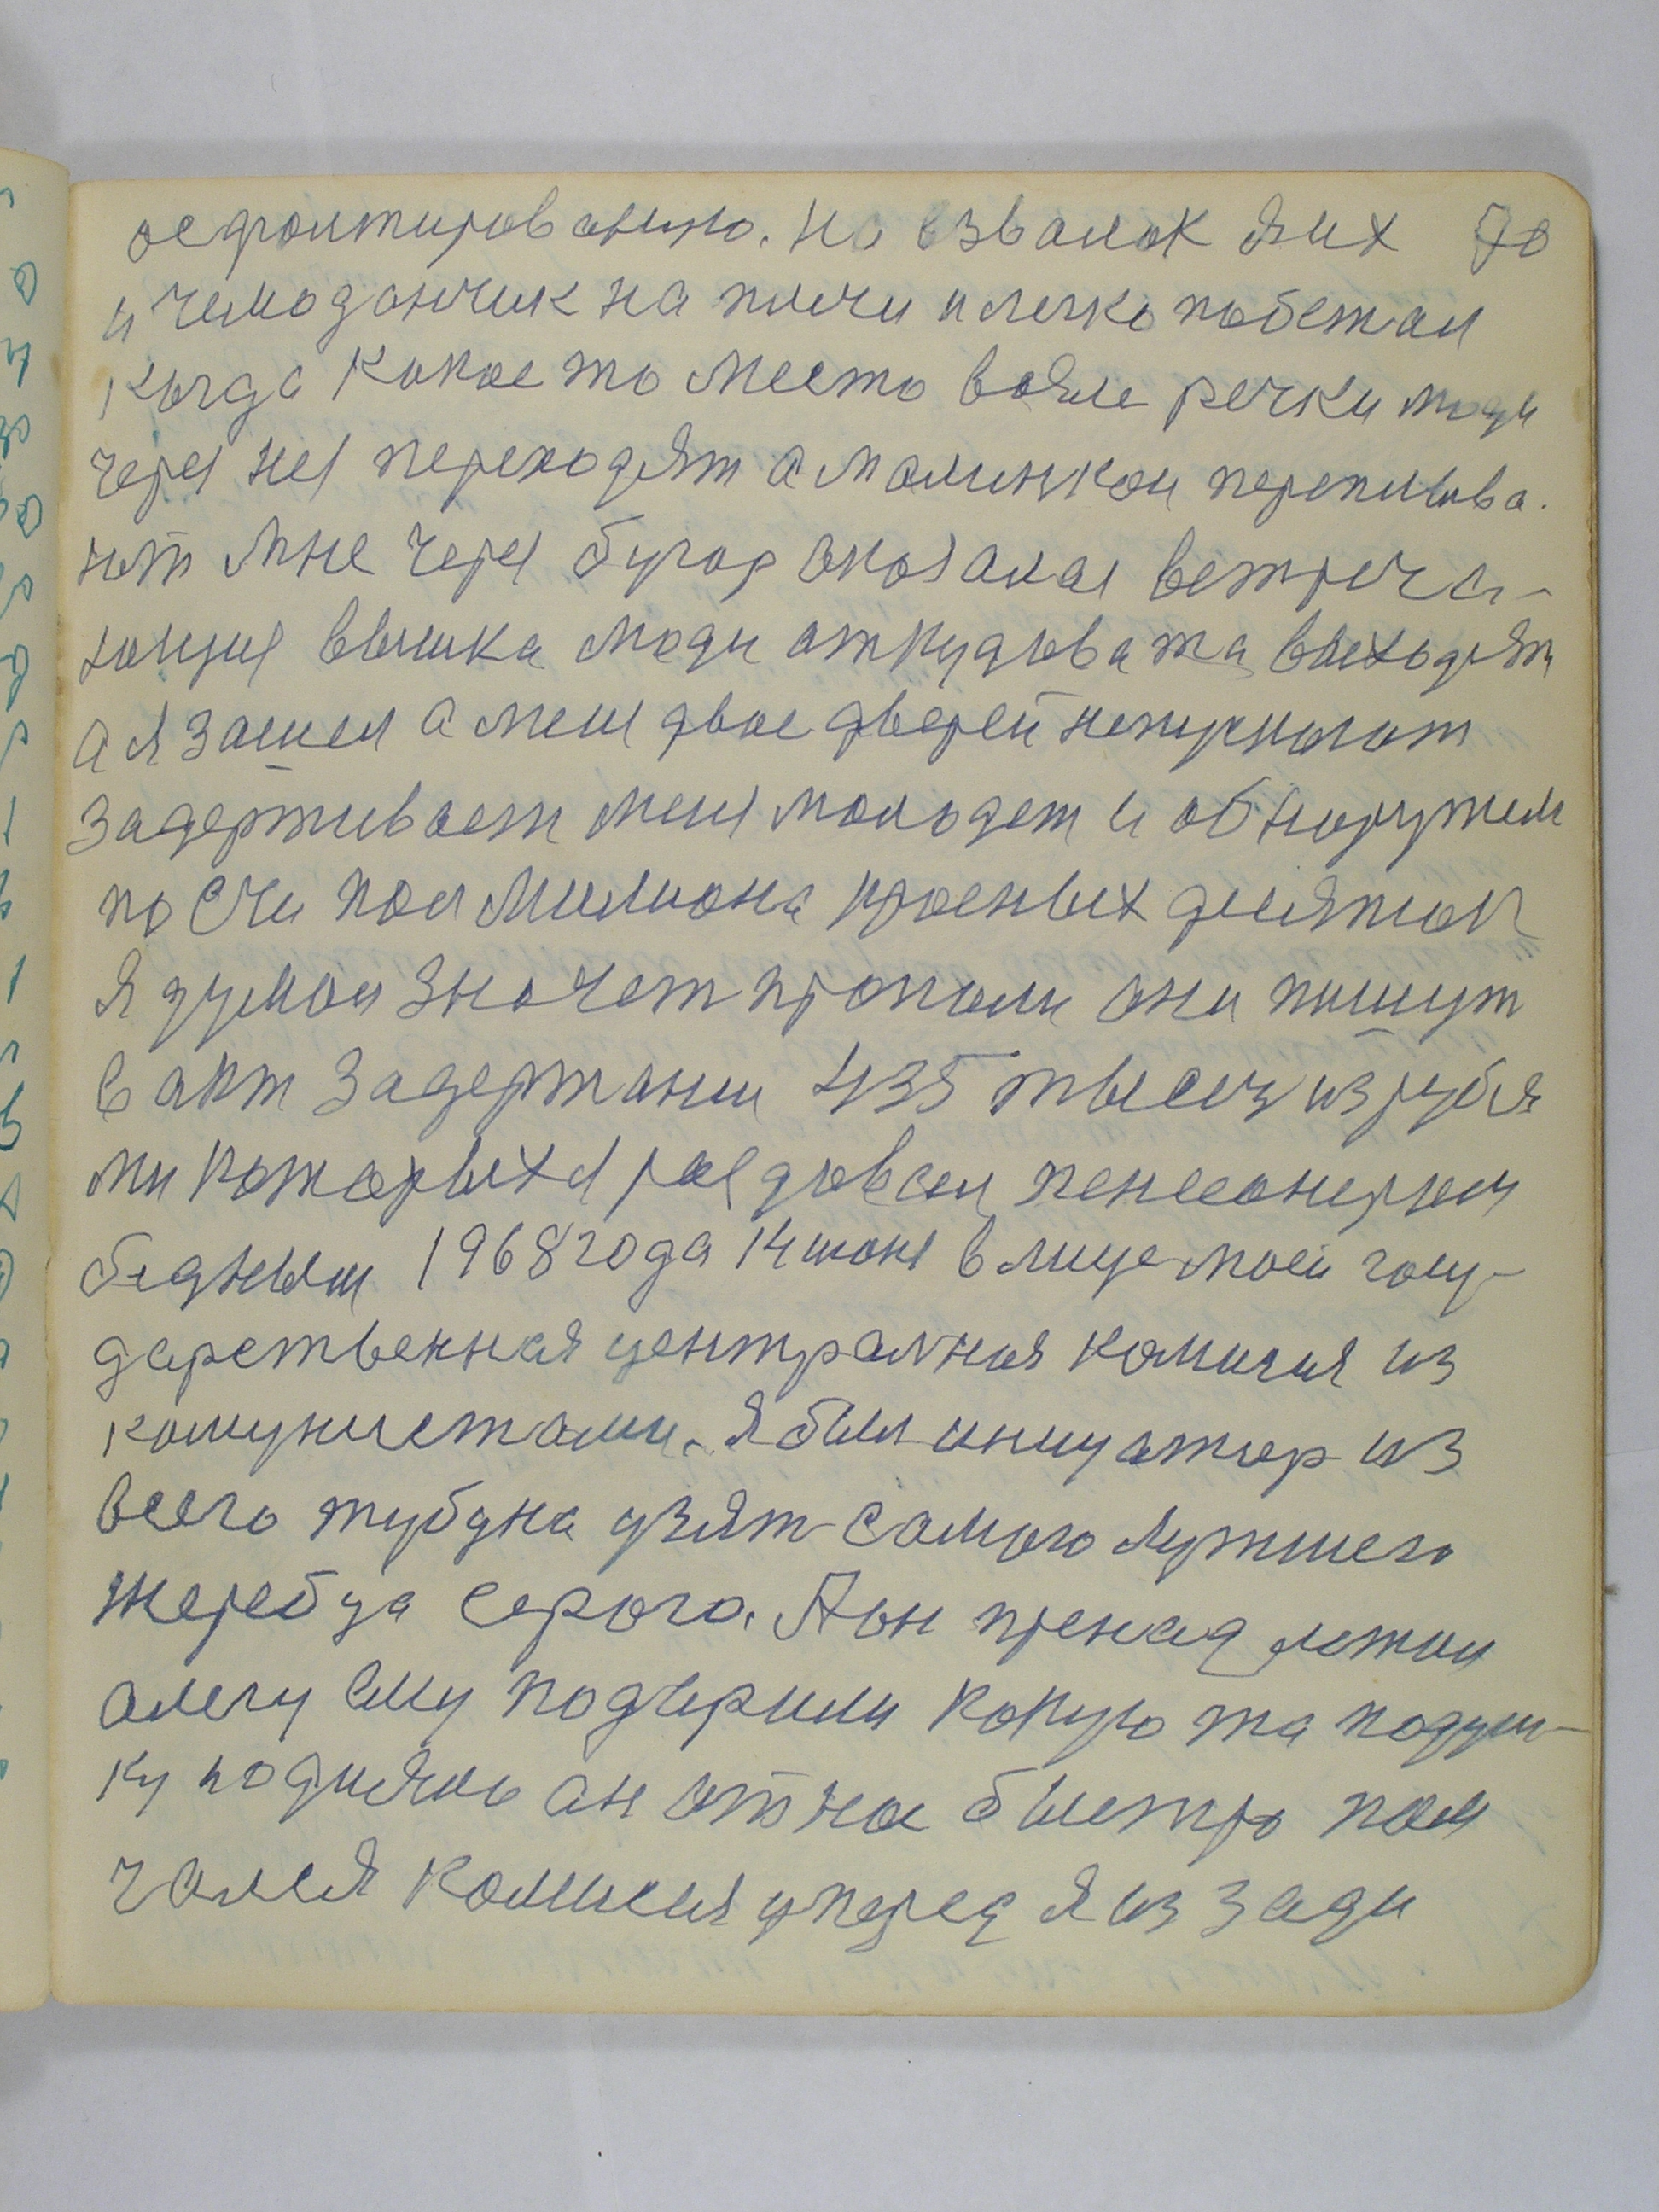 асфалтированию. На взвалок я их 70
и чемоданчик на плечи и легко побежал
когда какое то место возле речки люди
через нея переходят а малинкои переплыва-
ют мне через бугор оказалас встреча-
ющия вышка люди откудова та выходят
а я зашел а меня двое дверей непускают
задерживает меня молодеж и обнаружели
почти пол милиона красных десяток
я думал значет пропали они пишут
в акт задержании 435 тысеч из рубля
ми которых я раздавал пенсеонерам
бедным 1968 года 14 июня в лице моей госу-
дарственная централная комисия из
комунистами. Я был инициатор из
всего табуна узят самого лутшего
жеребца серого. А он пренадлежал
олегу ему подчерили какую та подуш-
ку поднялы он от нас быстро пом
чался комисия уперед я из зади